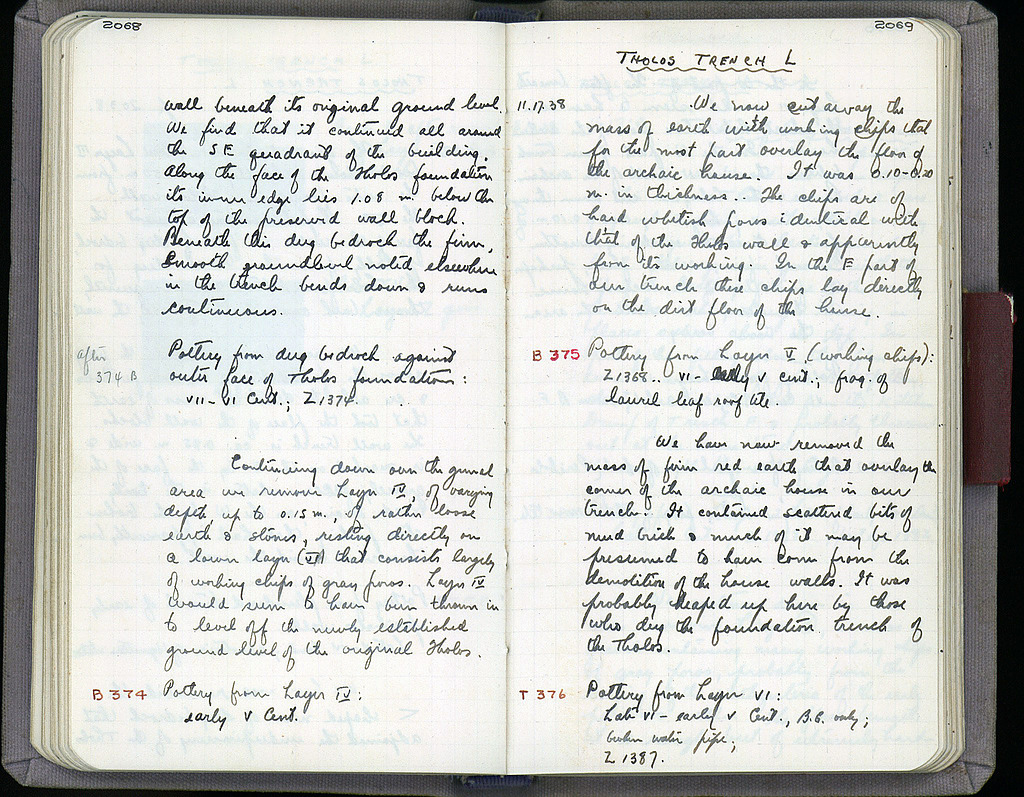 2068
wall beneath its original ground level.
We find that it continued all around
the SE quadrant of the building.
Along the face of the Tholos foundation
its inner edge lies 1.08 m. below the
top of the preserved wall block.
Beneath this dug bedrock the firm,
smooth groundlevel noted elsewhere
in the trench bends down & runs
continuous.
after
374 B
Pottery from dug bedrock against
outer face of Tholos foundations:
VII - VI Cent.; Z1374.
Continuing down over the general
area we remove Layer IV, of varying
depth, up to 0.15 m., of rather loose
earth & stones, resting directly on
a lower layer (V) that consists largely
of working chips of gray poros. Layer IV
would seem to have been thrown in
to level off the newly established
ground level of the original Tholos.
B 374 Pottery from Layer IV:
early V Cent.
2069
THOLOS TRENCH L
11.17.38 We now cut away the
mass of earth with working chips that
for the most part overlay the floor of
the archaic house. It was 0.10-0.20
m. in thickness.. The chips are of
hard whitish poros identical with
that of the Tholos wall & apparently
from its working. In the E part of
our trench these chips lay directly
on the dirt floor of the house.
B 375 Pottery from Layer V (working chips):
Z1368.. VI - early V cent.; frag. of
laurel leaf roof tile.
We have now removed the
mass of firm red earth that overlay the
corner of the archaic house in our
trench. It contained scattered bits of
mud brick & much of it may be
presumed to have come from the
demolition of the house walls. It was
probably heaped up here by those
who dug the foundation trench of
the Tholos.
T 376 Pottery from Layer VI:
Late VI - early V Cent., B.G. only;
broken water pipe;
Z 1387.